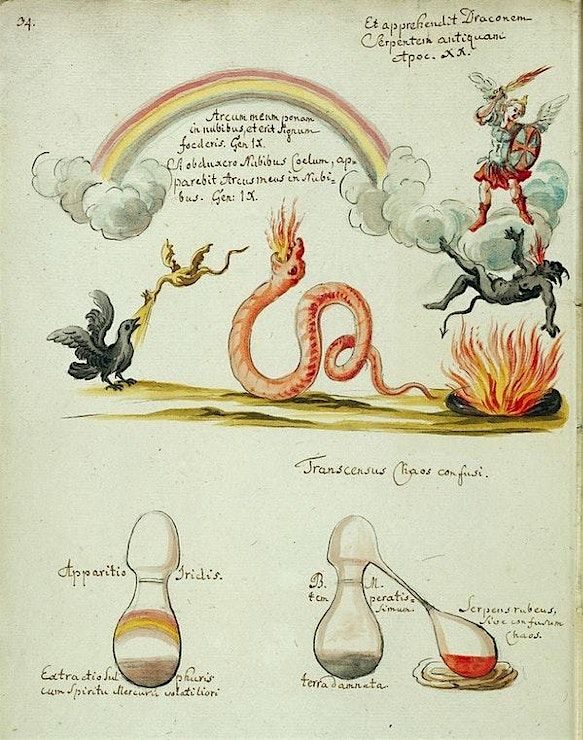 34.
Et apprehendit Draconem
Serpentem antiquam
Apoc. XX.
Arcum meum ponam
in nubibus, et erit signum
foederis. Gen IX.
Si obduxero Nubibus Coelum, ap-
parebit Arcus meus in Nubi-
bus. Gen: IX.
Transcensus Chaos confusi.
Apparitio Iridis.
Extractio Sulphuris
cum Spiritu Mercurii volatiliori
B. M.
tem peratis-
simum.
terra damnata.
Serpens rubeus,
sive confusum
Chaos.